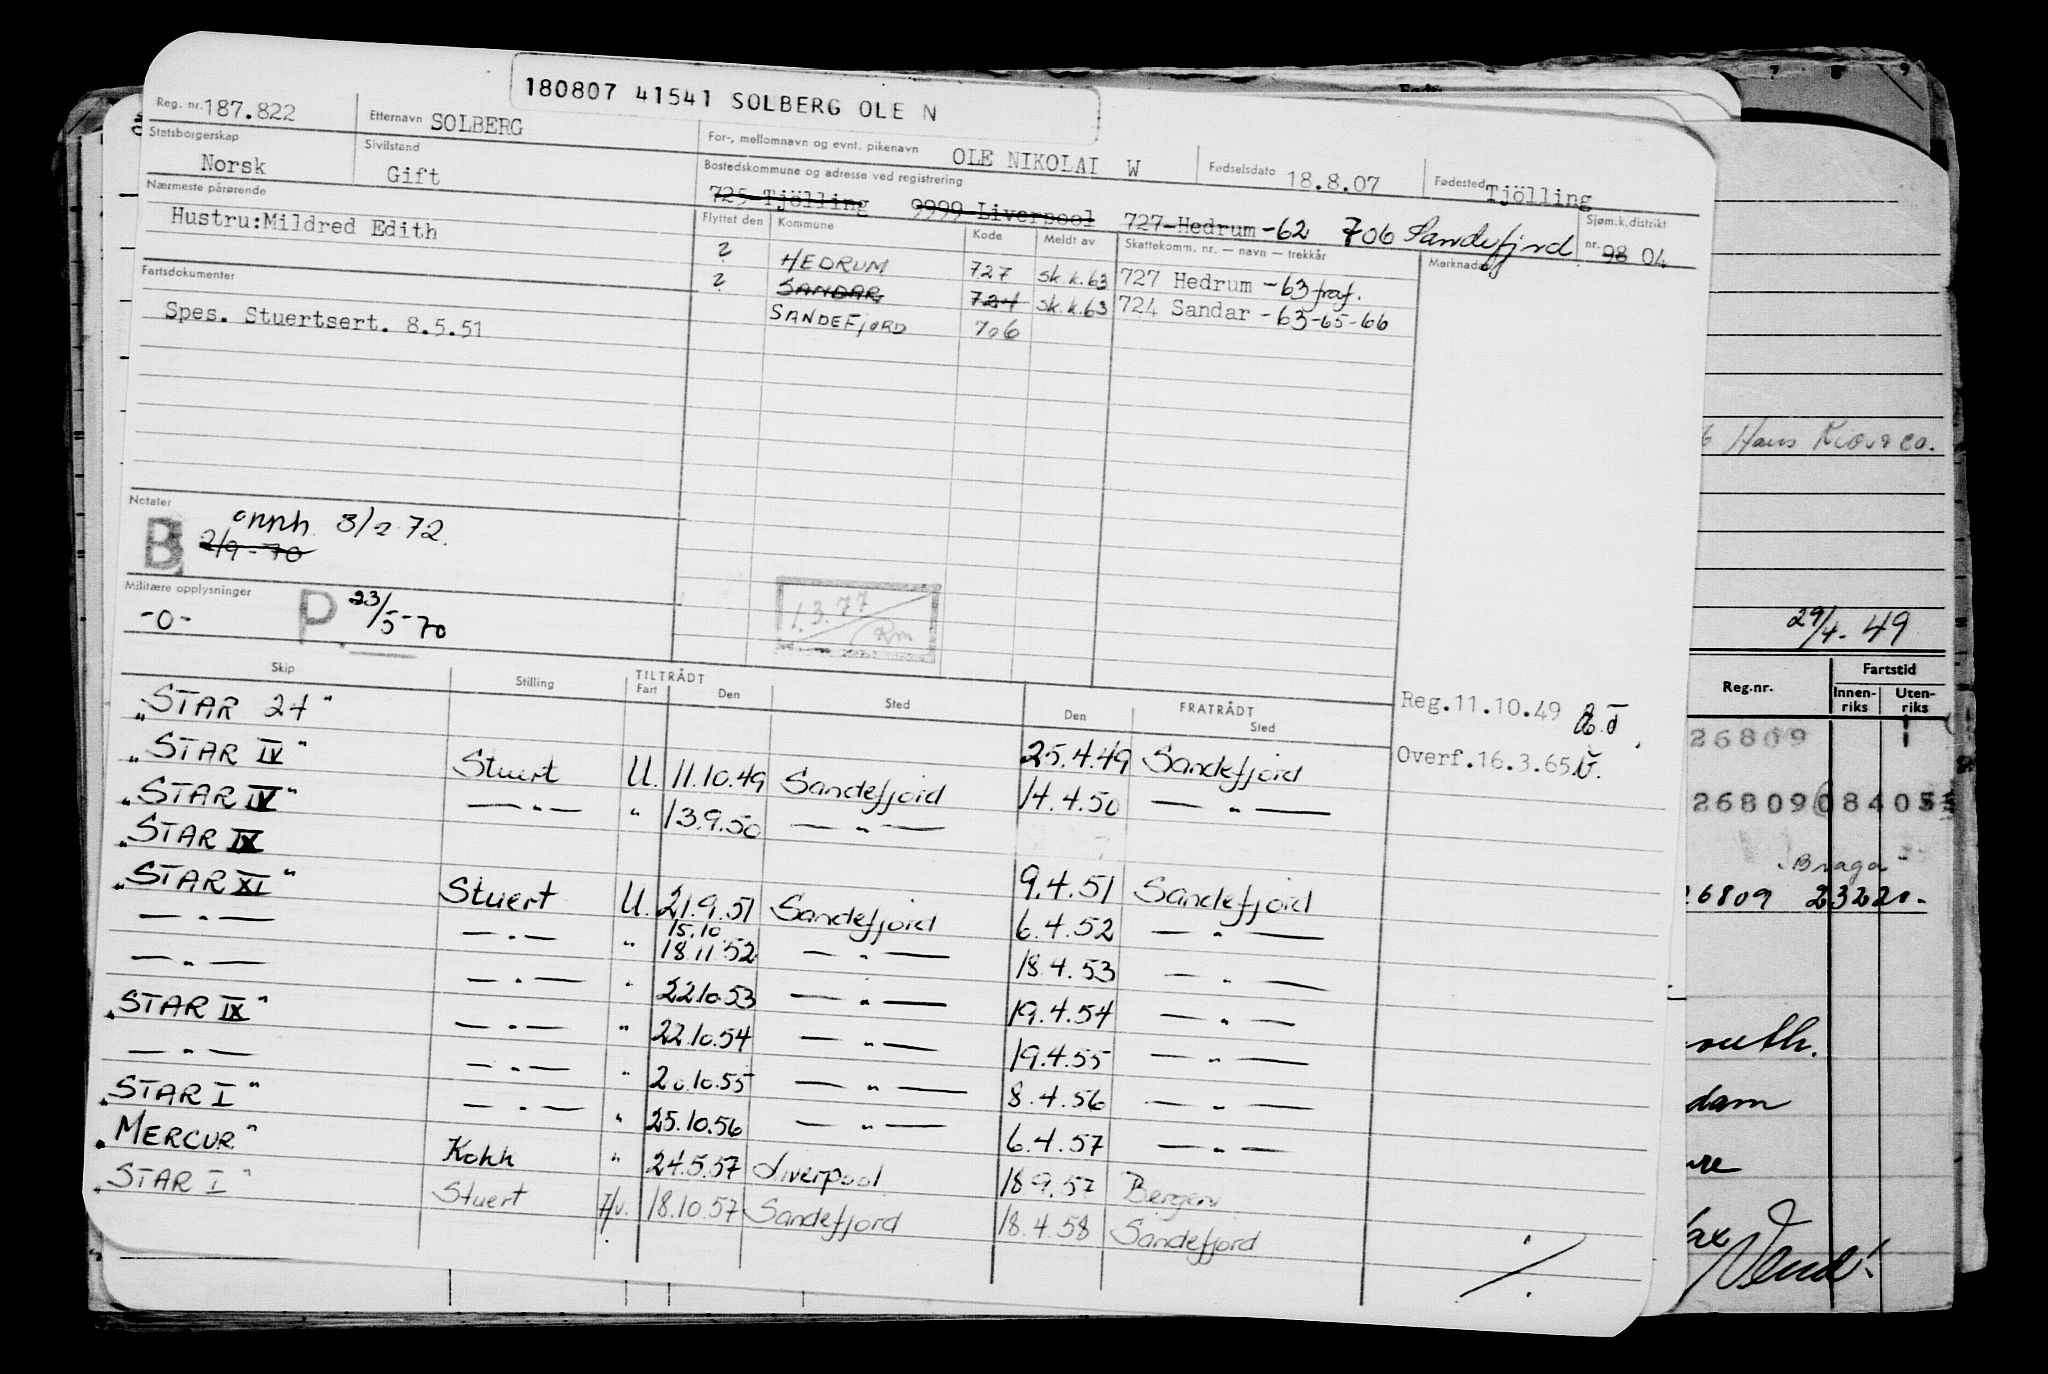 180807 41541 SOLBERG OLE N
Reg. nr. 187.822 Etternavn SOLBERG For-, mellomnavn og evnt. pikenavn OLE NIKOLAI W Fødselsdato 18.8.07 Fødested Tjölling
Statsborgerskap Norsk Sivilstand Gift Bostedskommune og adresse ved registrering
725 Tjölling 9999 Liverpool 727 Hedrum -62 706 Sandefjord Sjøm.k.distrikt nr. 98 04
Nærmeste pårørende
Hustru:Mildred Edith
Flyttet den Kommune Kode Meldt av Skattekomm. nr. — navn — trekkår Merknader
? HEDRUM 727 sk.k.63 727 Hedrum -63 fraf.
? SANDAR 724 sk.k.63 724 Sandar -63-65-66
SANDEFJORD 706
Fartsdokumenter
Spes. Stuertsert. 8.5.51
Notater
B annh. 3/2-72.
2/9-70
Militære opplysninger
-0- P. 23/5-70
1.3.77
Rm
Skip Stilling TILTRÅDT Fart Den Sted FRATRÅDT Den Sted
Reg.11.10.49
Overf.16.3.65
"STAR 24" 25.4.49 Sandefjord
"STAR IV" Stuert U. 11.10.49 Sandefjord 14.4.50 — " —
"STAR IV" — " — " 13.9.50 — " —
"STAR IX 9.4.51 Sandefjord
"STAR XI" Stuert U. 21.9.51 Sandefjord 6.4.52 — " —
— " — — " — " 15.10. 18.11.52 — " — 18.4.53 — " —
— " — — " — " 22.10.53 — " — 19.4.54 — " —
"STAR IX" — " — " 22.10.54 — " — 19.4.55 — " —
— " — — " — " 20.10.55 — " — 8.4.56 — " —
"STAR I" — " — " 25.10.56 — " — 6.4.57 — " —
"MERCUR" Kokk " 24.5.57 Liverpool 18.9.57 Bergen
"STAR I" Stuert H/v. 18.10.57 Sandefjord 18.4.58 Sandefjord
Hans Kiær & Co.
29/4-49
Reg.nr. Fartstid
Innen-riks Uten-riks
26809
26809 08405
"Braga"
26809 23220-
outh.
dam